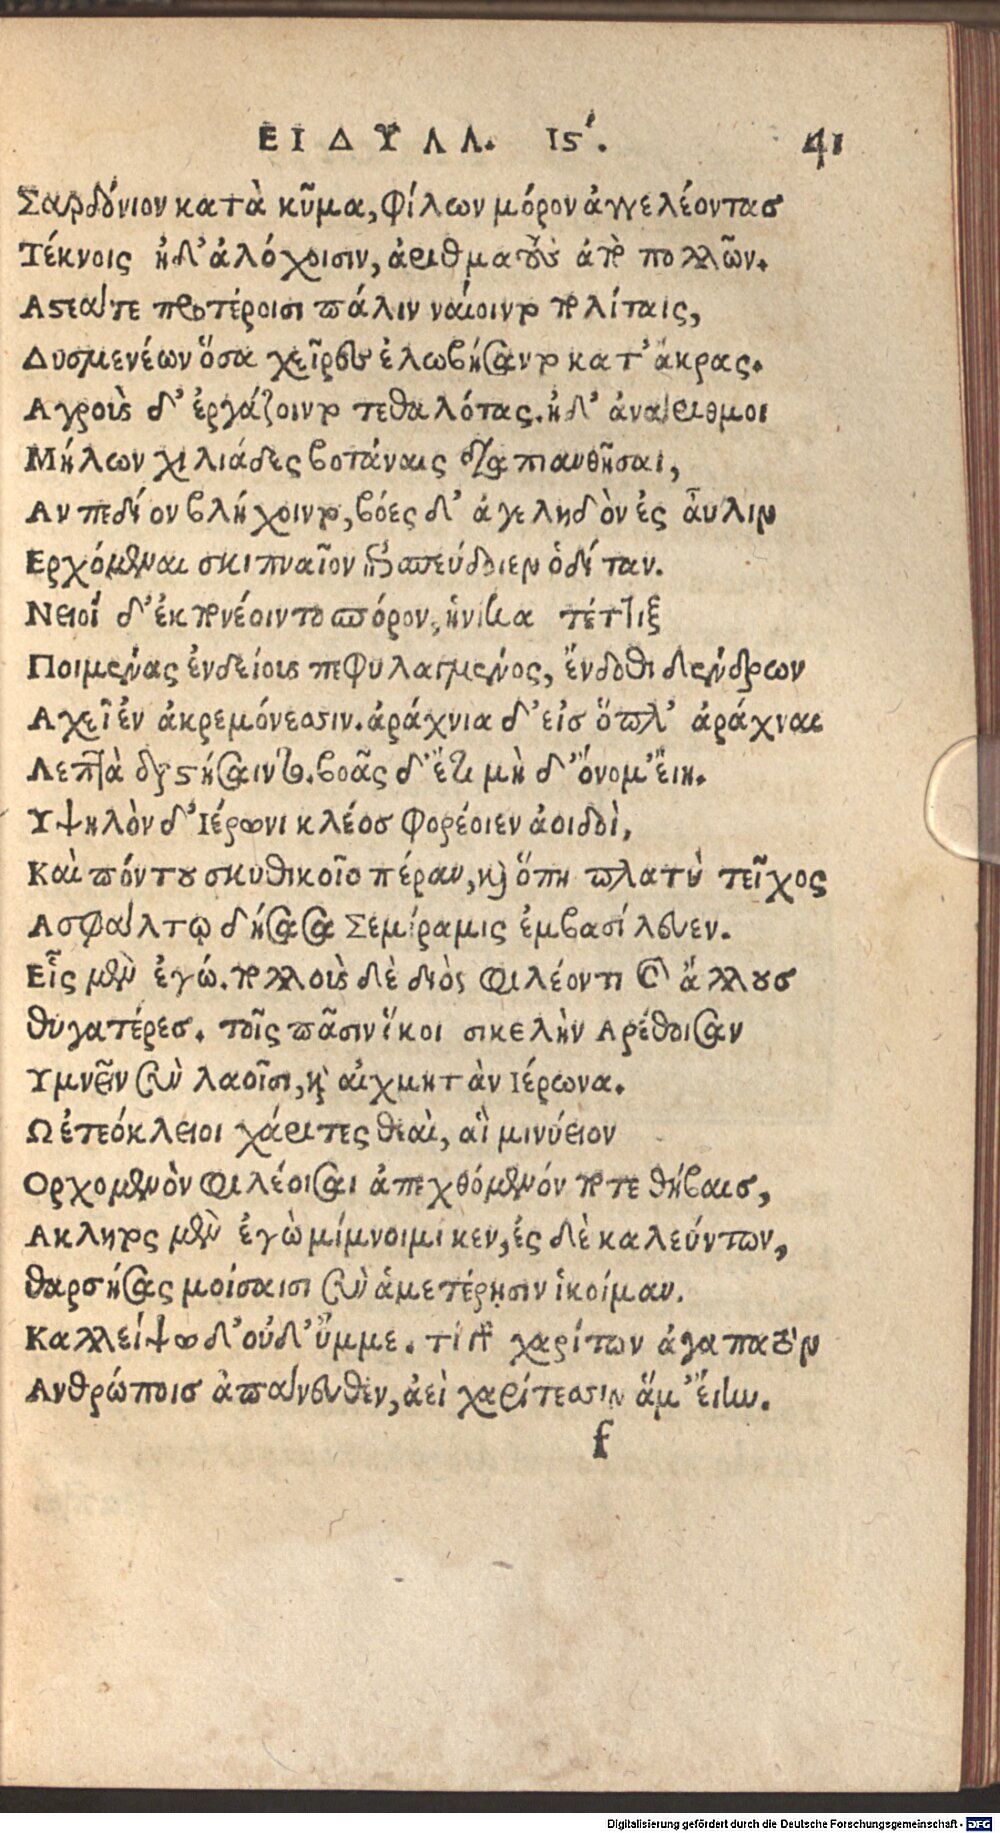 ΕΙΔΥΛΛ. Ιϛ΄. 41
Σαρδόνιον κατὰ κῦμα, φίλων μόρον ἀγγελέοντας
Τέκνοις ἠδ᾽ ἀλόχοισιν, ἀριθματοὺς ἀπὸ πολλῶν.
Αστεά τε προτέροισι πάλιν ναίοιντο πολίταις,
Δυσμενέων ὅσα χεῖρες ἐλωβήσαντο κατ᾽ ἄκρας.
Αγροὺς δ᾽ ἐργάζοιντο τεθαλότας. ἠδ᾽ ἀνάριθμοι
Μήλων χιλιάδες βοτάναις διαπιανθῆσαι,
Αν πεδίον βλήχοιντο, βόες δ᾽ ἀγεληδὸν ἐς αὖλιν
Ερχόμεναι σκιπναῖον ἐπισπεύδοιεν ὁδίταν.
Νειοί δ᾽ ἐκπονέοιντο πόρον, ἡνίκα τέττιξ
Ποιμένας ἐνδείους πεφυλαγμένος, ἔνδοθι δένδρων
Αχεῖ ἐν ἀκρεμόνεσσιν. ἀράχνια δ᾽ εἰς ὅπλ᾽ ἀράχναι
Λεπτὰ διαστήσαιντο. βοᾶς δ᾽ ἔτι μὴ δ᾽ ὄνομ᾽ εἴη.
Υψηλὸν δ᾽ Ἱέρωνι κλέος φορέοιεν ἀοιδοὶ,
Καὶ πόντου σκυθικοῖο πέραν, καὶ ὅπη πλατὺ τεῖχος
Ασφάλτῳ δήσασα Σεμίραμις ἐμβασίλευεν.
Εἷς μὲν ἐγώ. πολλοὺς δὲ διὸς φιλέοντι καὶ ἄλλους
θυγατέρες. τοῖς πᾶσιν ἵκοι σικελὴν Αρέθοισαν
Υμνεῖν σὺν λαοῖσι, καὶ αἰχμητὰν Ιέρωνα.
Ω ἐτεόκλειοι χάριτες θεαὶ, αἳ μινύειον
Ορχομενὸν φιλέοισαι ἀπεχθόμενόν ποτε θήβαις,
Ακλητος μὲν ἐγὼ μίμνοιμί κεν, ἐς δὲ καλεύντων,
θαρσήσας μοίσαισι σὺν ἁμετέρῃσιν ἱκοίμαν.
Καλλείψω δ᾽ οὐδ᾽ ὔμμε. τί γὰρ χαρίτων ἀγαπατὸν
Ανθρώποις ἀπάνευθεν, ἀεὶ χαρίτεσσιν ἅμ᾽ εἴην.
f
Digitalisierung gefördert durch die Deutsche Forschungsgemeinschaft - DFG